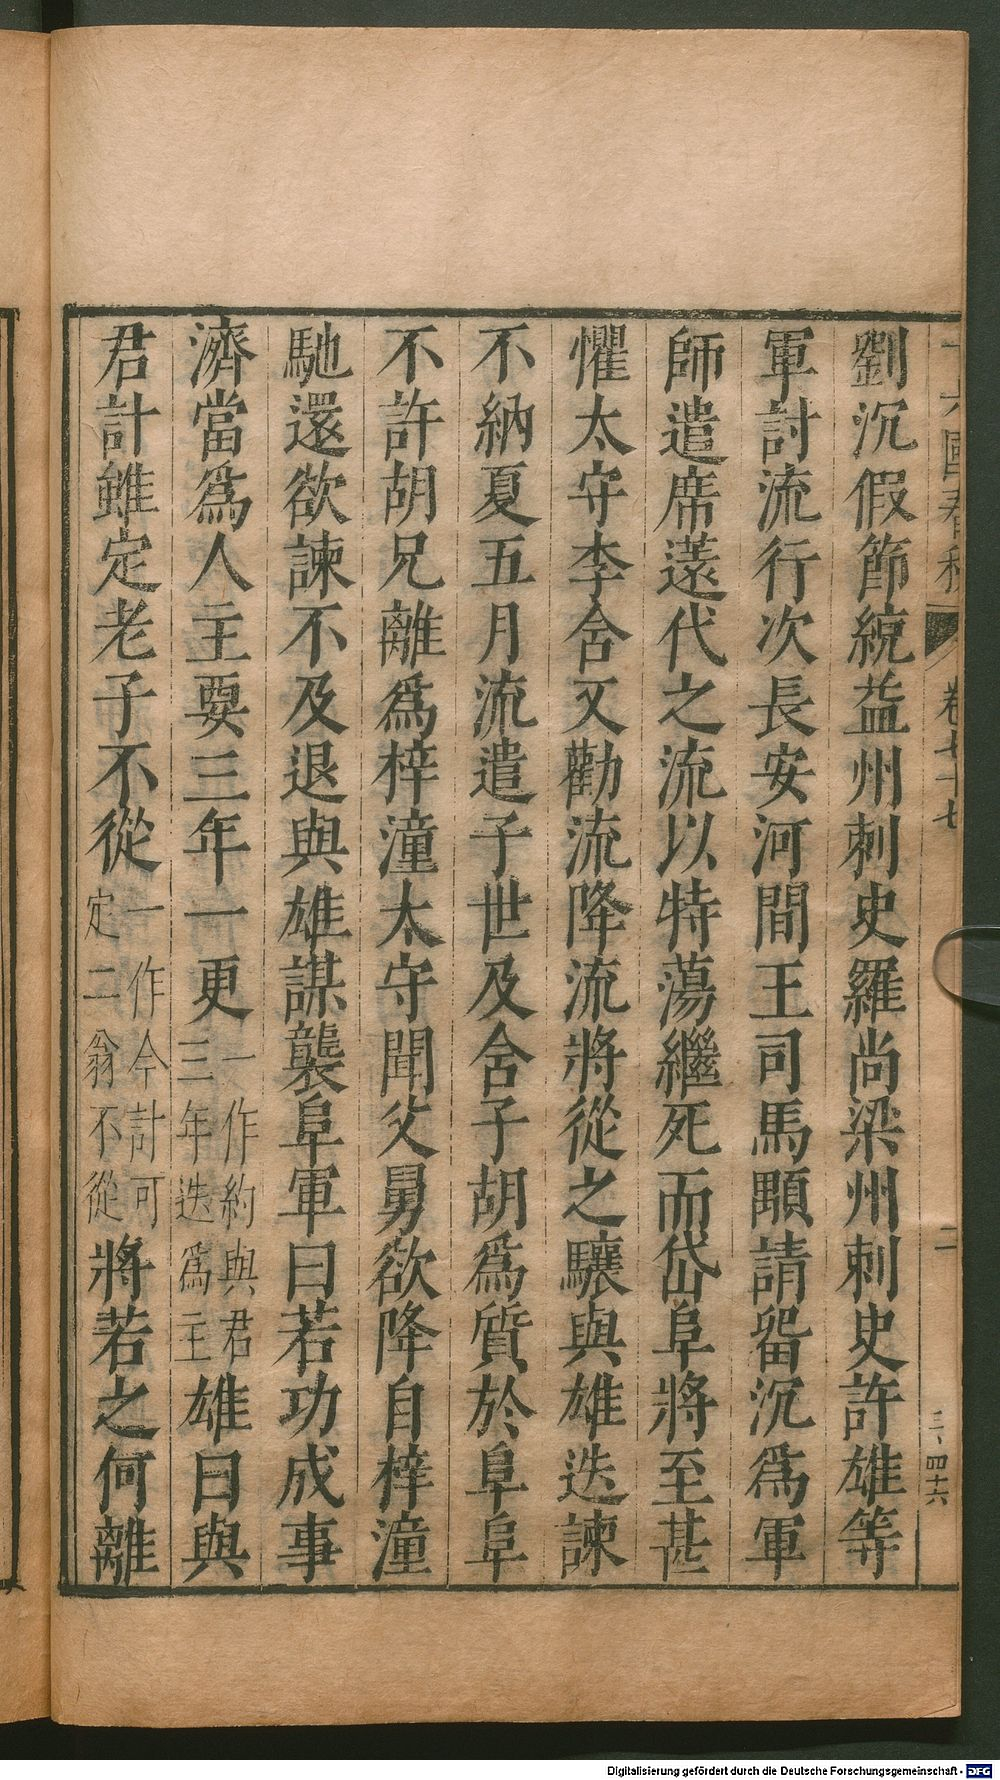 劉沉假節統益州刺史羅尚梁州刺史許雄等
軍討流行次長安河間王司馬顒請畱沉爲軍
師遣席薳代之流以特蕩繼死而岱阜將至甚
懼太守李含又勸流降流將從之驤與雄迭諫
不納夏五月流遣子世及含子胡爲質於阜阜
不許胡兄離爲梓潼太守聞父舅欲降自梓潼
馳還欲諫不及退與雄謀襲阜軍曰若功成事
濟當爲人主要三年一更一作約與君三年迭爲主雄曰與
君計雖定老子不從一作今計可定二翁不從將若之何離
十六國春秋 卷七十七 二 三、四十六
Digitalisierung gefördert durch die Deutsche Forschungsgemeinschaft - DFG